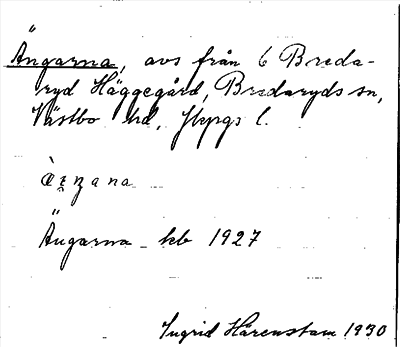 Ängarna, avs från 6 Breda-
ryd Häggegård, Bredaryds sn,
Västbo hd, Jkpgs l.
Ängarna kb 1927
Ingrid Hårenstam 1930